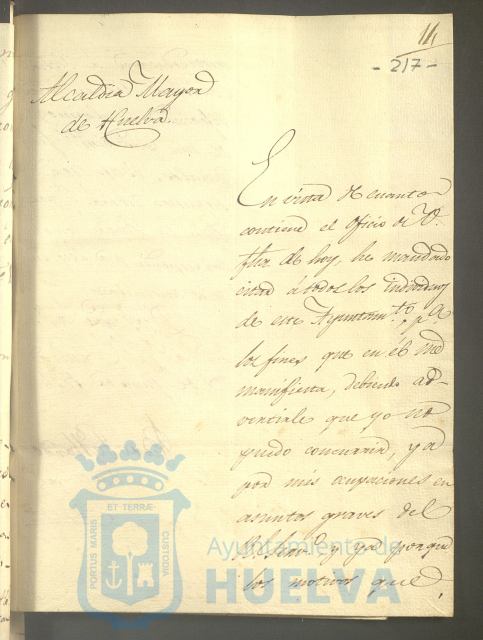 11,
- 217 -
Alcaldia Mayor
de Huelva.
En vista de cuanto
contiene el Oficio de V.
fha de hoy, he mandado
citar á todos los individuos
de este Ayuntam.to p.a
los fines que en él me
manifiesta, debiendo ad-
vertirle que yo no
puedo concurrir, ya
por mis ocupaciones en
asuntos graves del
R.l Serv.o y ya porque
los motivos que
PORTUS MARIS ET TERRÆ CUSTODIA
Ayuntamiento de
HUELVA